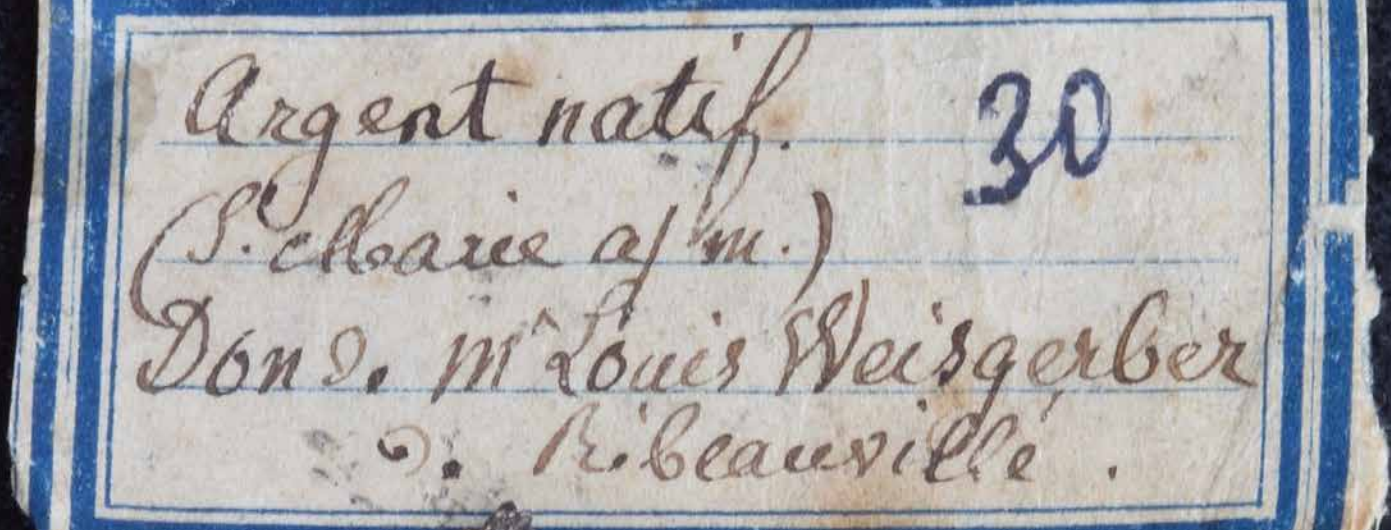 Argent natif. 30
(S. Marie a/m.)
Don d. Mr Louis Weisgerber
d. Ribeauvillé.